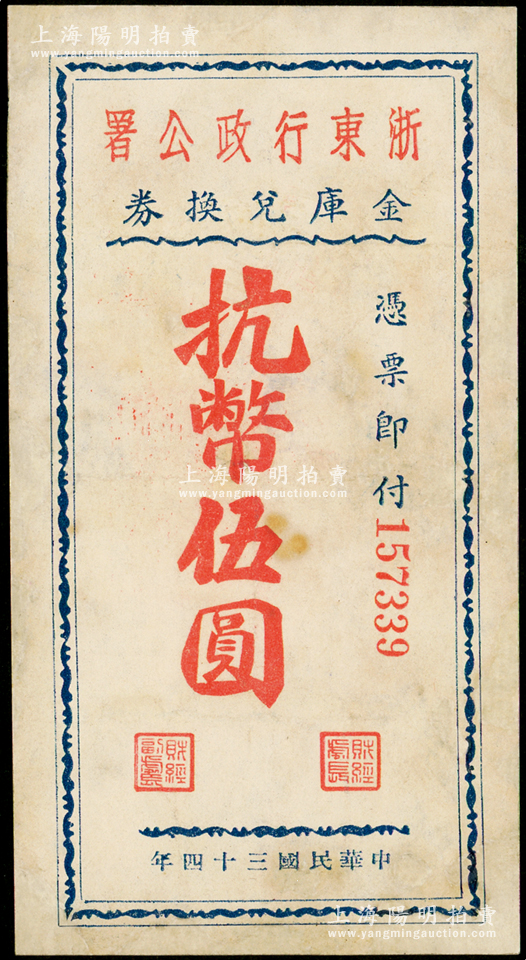 上海陽明拍賣
www.yangmingauction.com
浙東行政公署
金庫兌換券
憑票即付
157339
抗幣伍圓
上海陽明拍賣
www.yangmingauction.com
財經處長
財經副處長
中華民國三十四年
上海陽明拍賣
www.yangmingauction.com